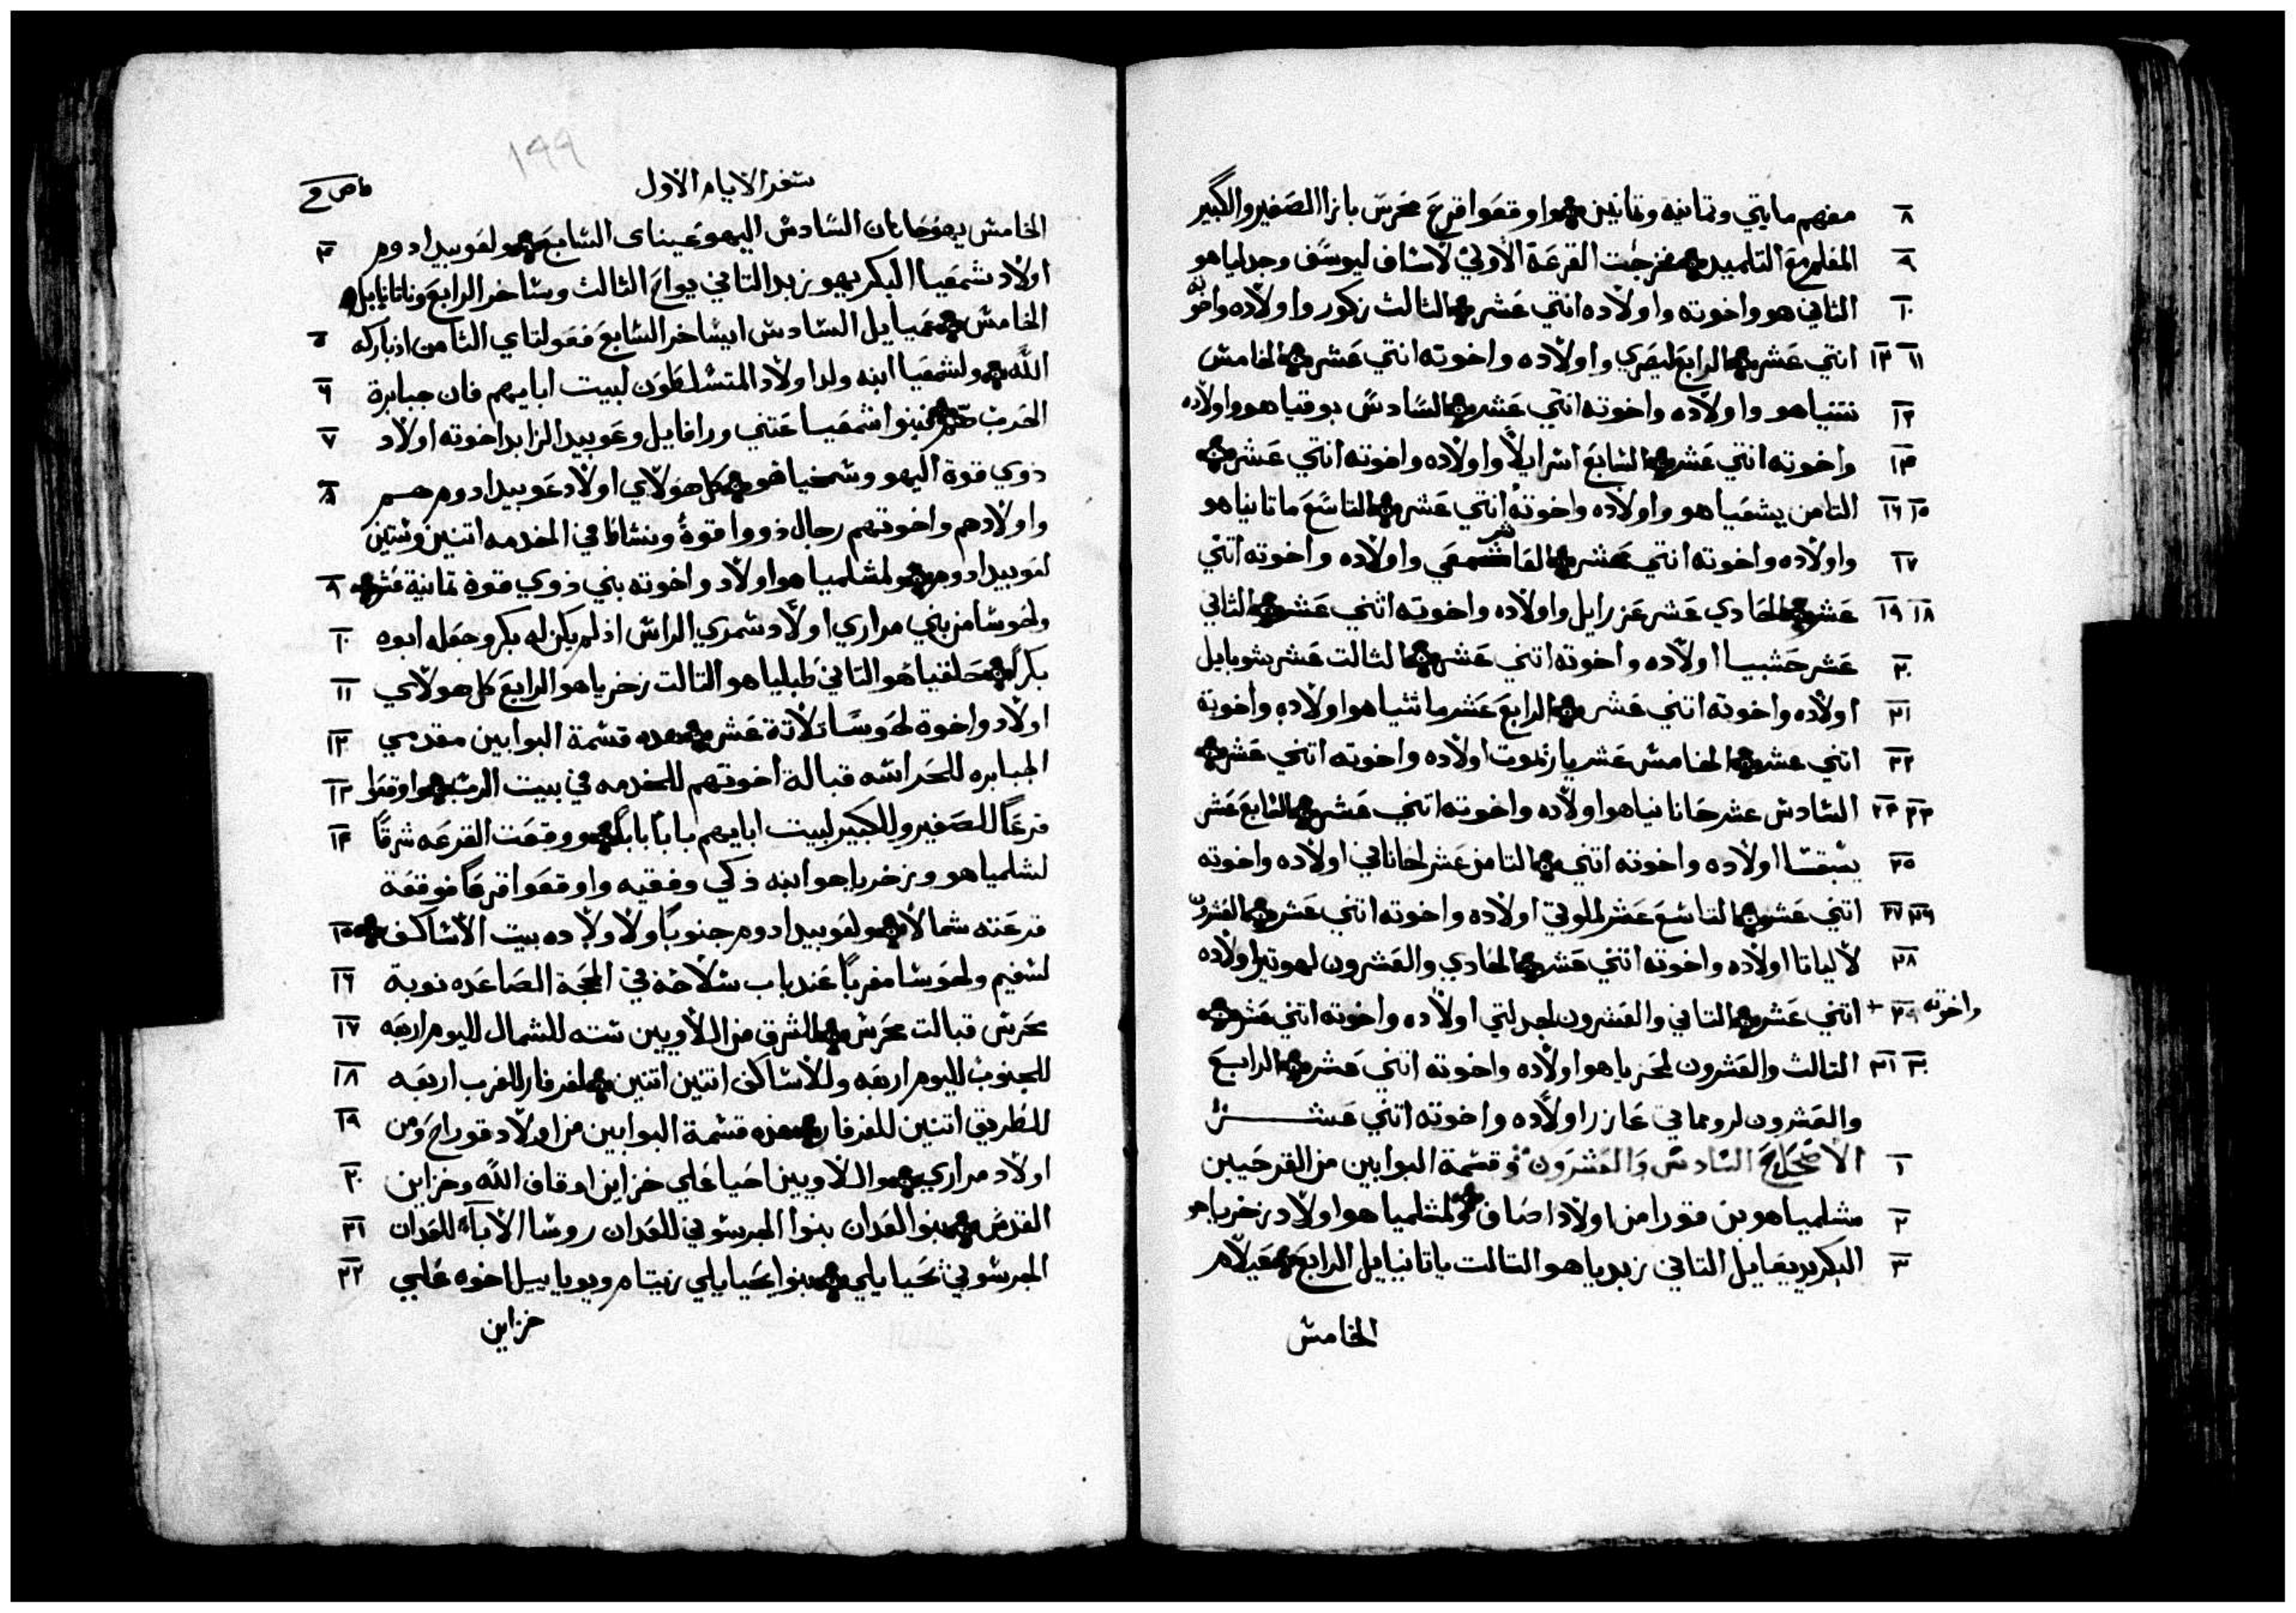 ٨ معهم مايتي وتمانية وتمانين واوقعوا قرع محرس بازا الصغير والكبير
٩ المعلم مع التلميد فخرجت القرعة الاولي لاساف ليوسف وجدلياهو
١٠ التاني هو واخوته واولاده اتني عشر التالت زكور واولاده واخوته
١١ ١٢ اتني عشر الرابع ليصري واولاده واخوته اتني عشر الخامس
١٢ نتنياهو واولاده واخوته اتني عشر السادس بوقياهو واولاده
١٤ واخوته اتني عشر السابع اسرايلا واولاده واخوته اتني عشر
١٥ ١٦ التامن يشعياهو واولاده واخوته اتني عشر التاسع ماتانياهو
١٧ واولاده واخوته اتني عشر العاشر شمعي واولاده واخوته اتني
١٨ ١٩ عشر الحادي عشر عزرايل واولاده واخوته اتني عشر التاني
٢٠ عشر حشبيا اولاده واخوته اتني عشر التالت عشر شوبايل
٢١ اولاده واخوته اتني عشر الرابع عشر ماتتياهو اولاده واخوته
٢٢ اتني عشر الخامس عشر يارتموت اولاده واخوته اتني عشر
٢٣ ٢٤ السادس عشر حانانياهو اولاده واخوته اتني عشر السابع عشر
٢٥ يشبقسا اولاده واخوته اتني التامن عشر لحاناني اولاده واخوته
٢٦ ٢٧ اتني عشر التاسع عشر لملوتي اولاده واخوته اتني عشر العشرون
٢٨ لالياتا اولاده واخوته اتني عشر الحادي والعشرون لهوتير اولاده
واخوته ٢٩ + اتني عشر التاني والعشرون لجدلتي اولاده واخوته اتني عشر
٣٠ ٣١ التالت والعشرون لمحزياهو اولاده واخوته اتني عشر الرابع
والعشرون لرومماتي عازر اولاده واخوته اتني عشر
١ الاصحاح السادس والعشرون وقسمة البوابين من القرحيين
٢ مشلمياهو بن قورا من اولاد اصاف ولمشلمياهو اولاد زخرياهو
٣ البكر يديعايل التاني زبدياهو التالت ياتانيايل الرابع عيلام
الخامس
١٩٩
سفر الايام الاول
الخامس يهوحانان السادس اليهوعيناى السابع ولعوبيد ادوم ٤
اولاد شمعيا البكر يهوزبد التاني يواح التالت وساخر الرابع وناتانايل
الخامس عميايل السادس ايساخر السابع فعولتاي التامن اذ باركه ٥
الله ولشمعيا ابنه ولد اولاد المتسلطون لبيت ابايهم فان جبابرة ٦
الحرب هم فبنوا شمعيا عتني ورافايل وعوبيد الزابد اخوته اولاد ٧
ذوي قوة اليهو وسمخياهو كل هولاي اولاد عوبيد ادوم هم ٨
واولادهم واخوتهم رجال ذووا قوة ونشاط في الخدمه اتنين وستين
لعوبيد ادوم ولمشلمياهو اولاد واخوته بني ذوي قوة تمانية عشر ٩
ولحوسا من بني مراري اولاد شمري الراس اذ لم يكن له بكر وجعله ابوه ١٠
بكراً حلقياهو التاني طبلياهو التالت زخرياهو الرابع كل هولاي ١١
اولاد واخوة لحوسا تلاتة عشر هده قسمة البوابين مقدمي ١٢
الجبابره للحراسه قبالة اخوتهم للخدمه في بيت الرب واوقعوا ١٣
قرعًا للصغير وللكبير لبيت ابايهم بابًا بابًا ووقعت القرعه شرقًا ١٤
لشلمياهو وزخرياهو ابنه ذكي وفقيه واوقعوا قرعًا فوقعة
قرعته شمالا ولعوبيد ادوم جنوبًا ولاولاده بيت الاساكف ١٥
لشفيم ولحوسا مغربًا عند باب شلاخة في المحجة الصاعده نوبة ١٦
محرس قبالت محرس للشرق من اللاويين سته للشمال لليوم اربعه ١٧
للجنوب لليوم اربعه وللاساكف اتنين اتنين لفرفار للغرب اربعه ١٨
للطريق اتنين للفرفار هذه قسمة البوابين من اولاد قوراح ومن ١٩
اولاد مراري واللاويين احيا علي خزاين اوقاف الله وخزاين ٢٠
القدس بنوا لعدان بنوا الجرسوني للعدان روسا الاباء للعدان ٢١
الجرسوني يحيايلي بنوا يحيايلي زيتام ويويابيل اخوه علي ٢٢
خزاين